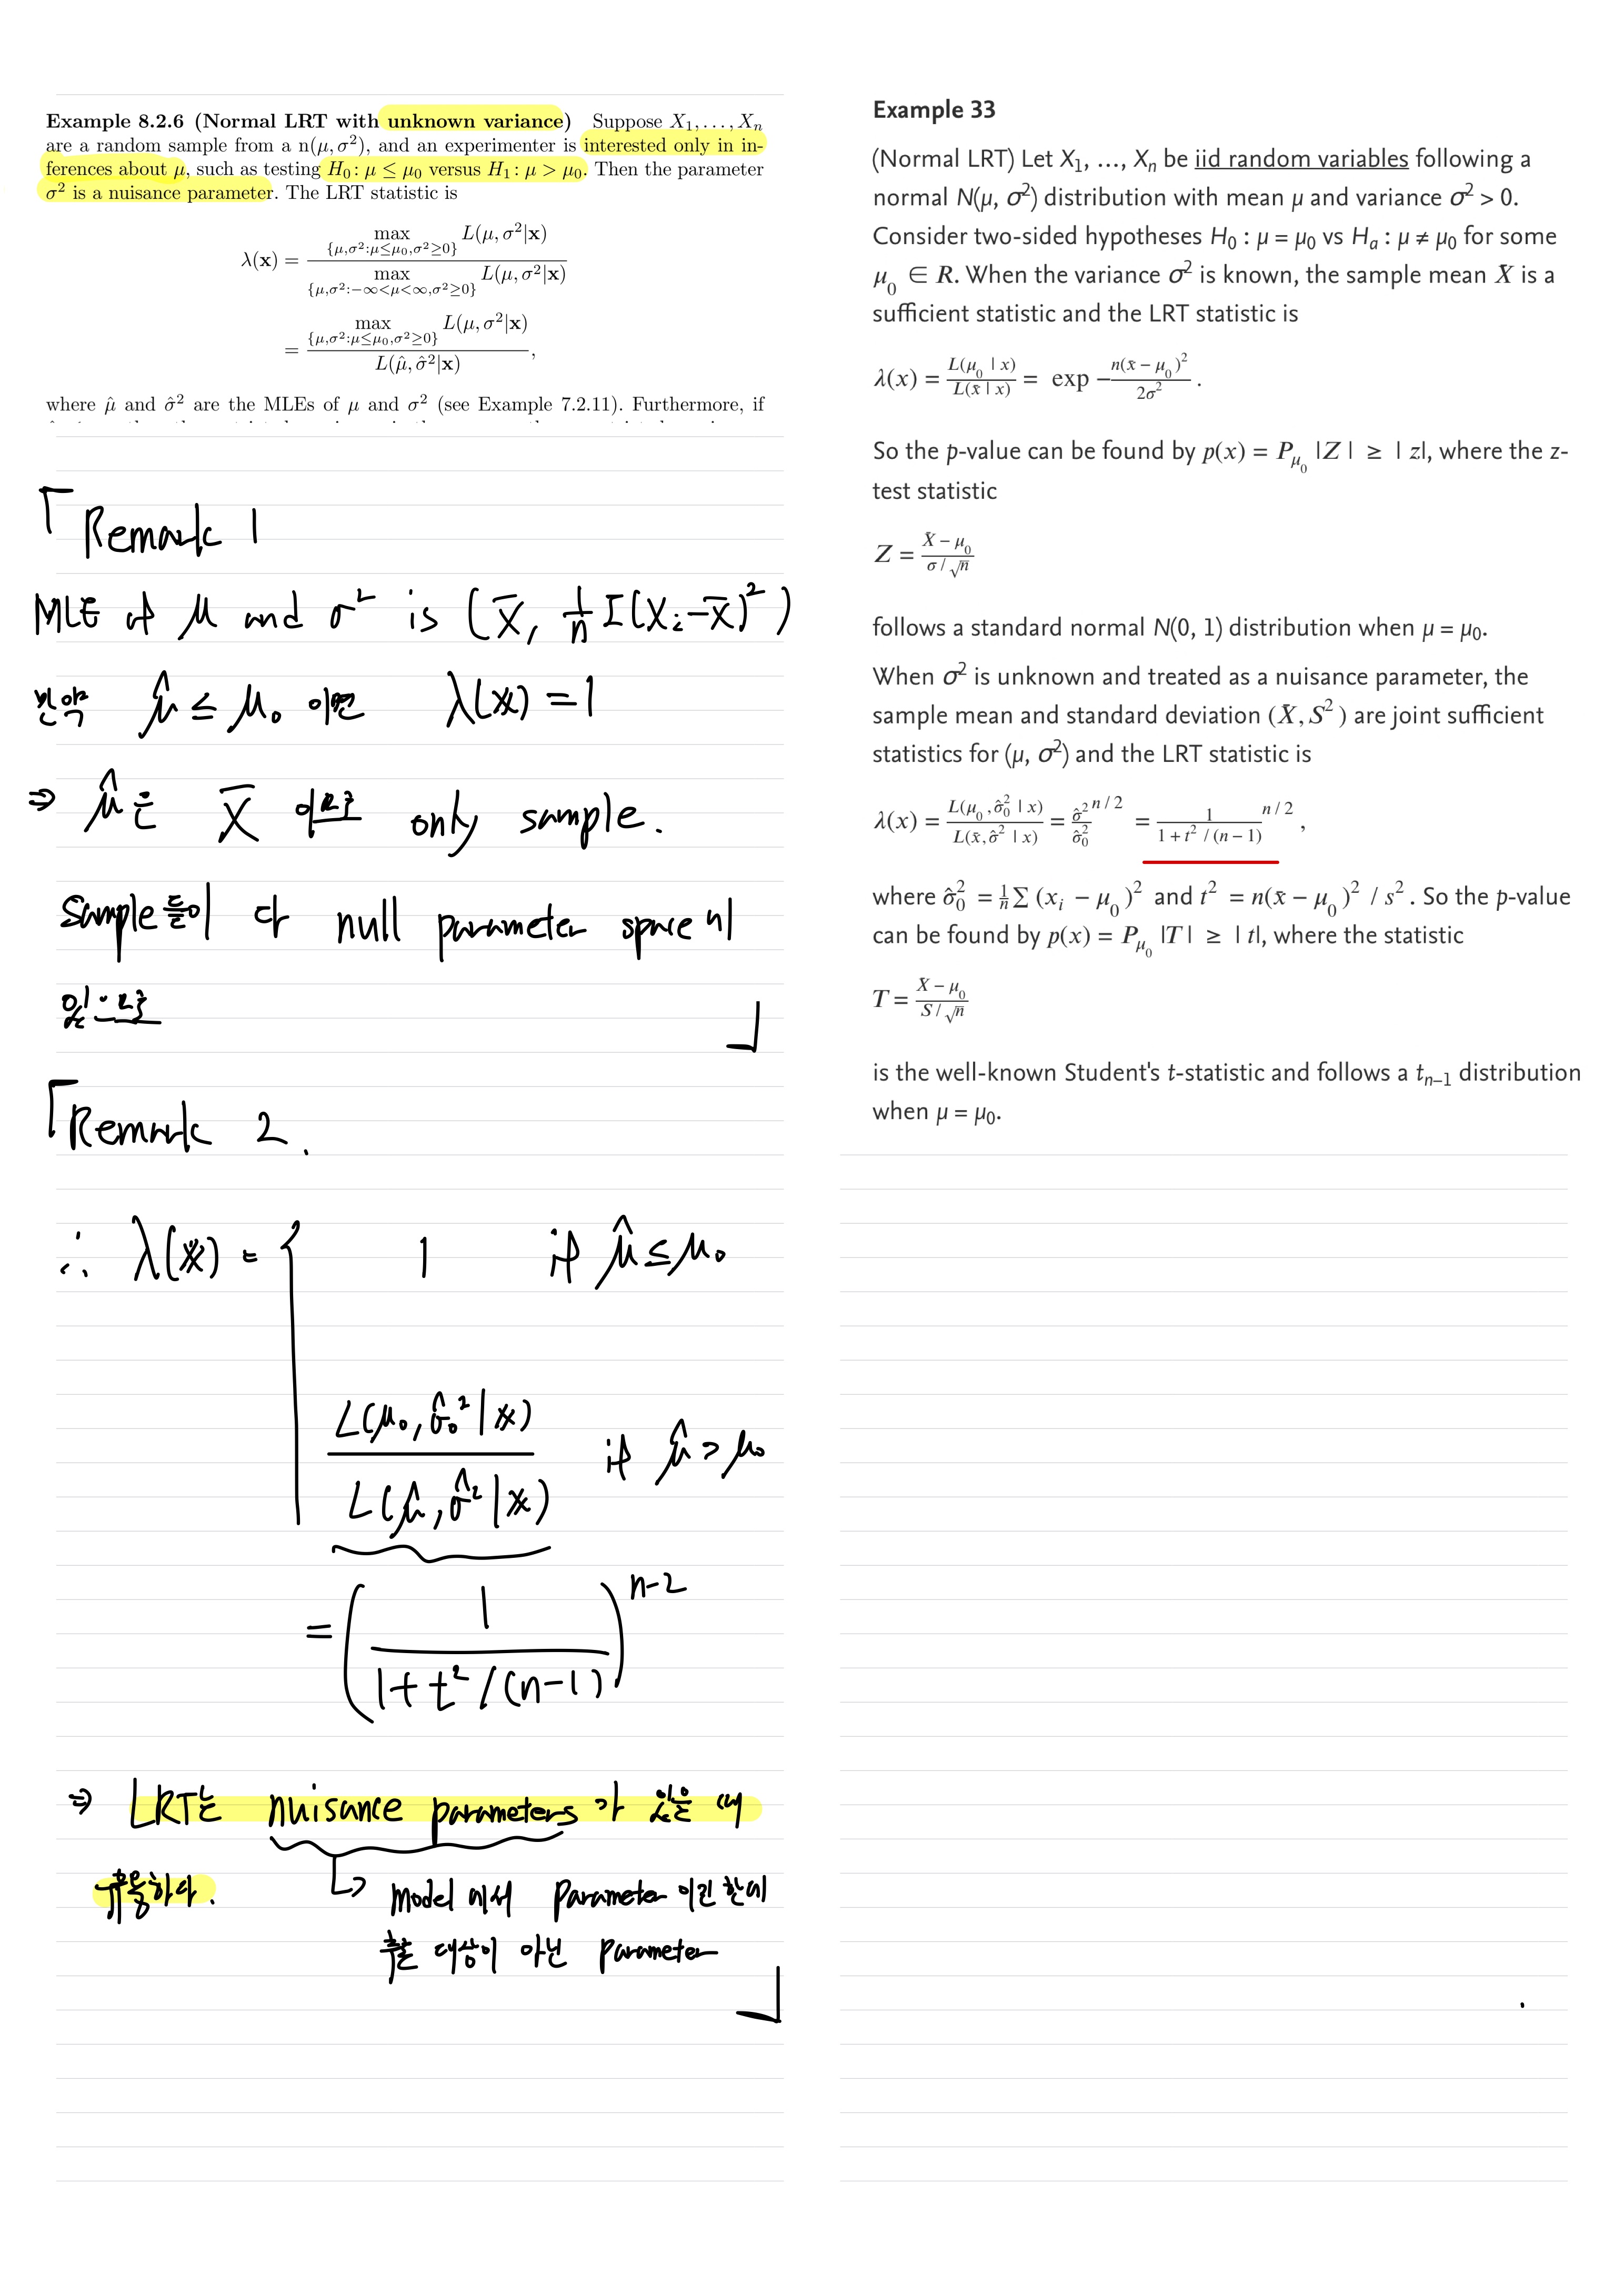 Example 8.2.6 (Normal LRT with unknown variance) Suppose X₁, . . . , Xₙ
are a random sample from a n(μ, σ²), and an experimenter is interested only in in-
ferences about μ, such as testing H₀: μ ≤ μ₀ versus H₁: μ > μ₀. Then the parameter
σ² is a nuisance parameter. The LRT statistic is
λ(x) = max_{μ,σ²:μ≤μ₀,σ²≥0} L(μ, σ²|x) / max_{μ,σ²:−∞<μ<∞,σ²≥0} L(μ, σ²|x)
= max_{μ,σ²:μ≤μ₀,σ²≥0} L(μ, σ²|x) / L(μ̂, σ̂²|x),
where μ̂ and σ̂² are the MLEs of μ and σ² (see Example 7.2.11). Furthermore, if
「Remark 1
MLE of μ and σ² is (X̄, 1/n Σ(Xᵢ-X̄)²)
만약 μ̂ ≤ μ₀ 이면 λ(x) = 1
⇒ μ̂는 X̄ 이므로 only sample.
Sample들이 다 null parameter space에
있으므로 」
「Remark 2.
∴ λ(x) = { 1 if μ̂ ≤ μ₀
L(μ₀, σ̂₀²|x) / L(μ̂, σ̂²|x) if μ̂ > μ₀
= (1 / (1+t²/(n-1)))^(n-2)
⇒ LRT는 nuisance parameters가 있을 때
유용하다. ↳ Model에서 Parameter이긴 한데
추론 대상이 아닌 parameter 」
Example 33
(Normal LRT) Let X₁, …, Xₙ be iid random variables following a
normal N(μ, σ²) distribution with mean μ and variance σ² > 0.
Consider two-sided hypotheses H₀ : μ = μ₀ vs Hₐ : μ ≠ μ₀ for some
μ₀ ∈ R. When the variance σ² is known, the sample mean X̄ is a
sufficient statistic and the LRT statistic is
λ(x) = L(μ₀ | x) / L(x̄ | x) = exp − n(x̄ − μ₀)² / 2σ² .
So the p-value can be found by p(x) = P_μ₀ |Z| ≥ |z|, where the z-
test statistic
Z = (X̄ − μ₀) / (σ / √n)
follows a standard normal N(0, 1) distribution when μ = μ₀.
When σ² is unknown and treated as a nuisance parameter, the
sample mean and standard deviation (X̄, S²) are joint sufficient
statistics for (μ, σ²) and the LRT statistic is
λ(x) = L(μ₀, σ̂₀² | x) / L(x̄, σ̂² | x) = σ̂² / σ̂₀² ^(n/2) = 1 / (1 + t² / (n − 1)) ^(n/2) ,
where σ̂₀² = 1/n Σ (xᵢ − μ₀)² and t² = n(x̄ − μ₀)² / s². So the p-value
can be found by p(x) = P_μ₀ |T| ≥ |t|, where the statistic
T = (X̄ − μ₀) / (S / √n)
is the well-known Student's t-statistic and follows a tₙ₋₁ distribution
when μ = μ₀.